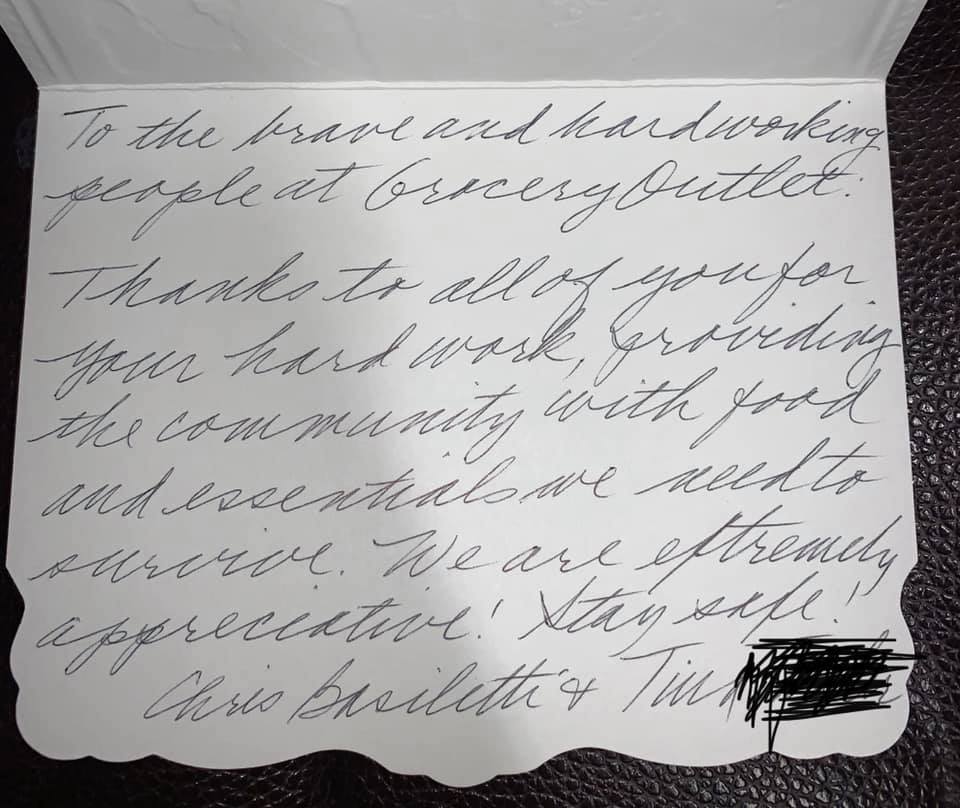 To the brave and hardworking
people at Grocery Outlet:
Thanks to all of you for
your hard work, providing
the community with food
and essentials we need to
survive. We are extremely
appreciative! Stay safe!
Chris Basiletti & Tina